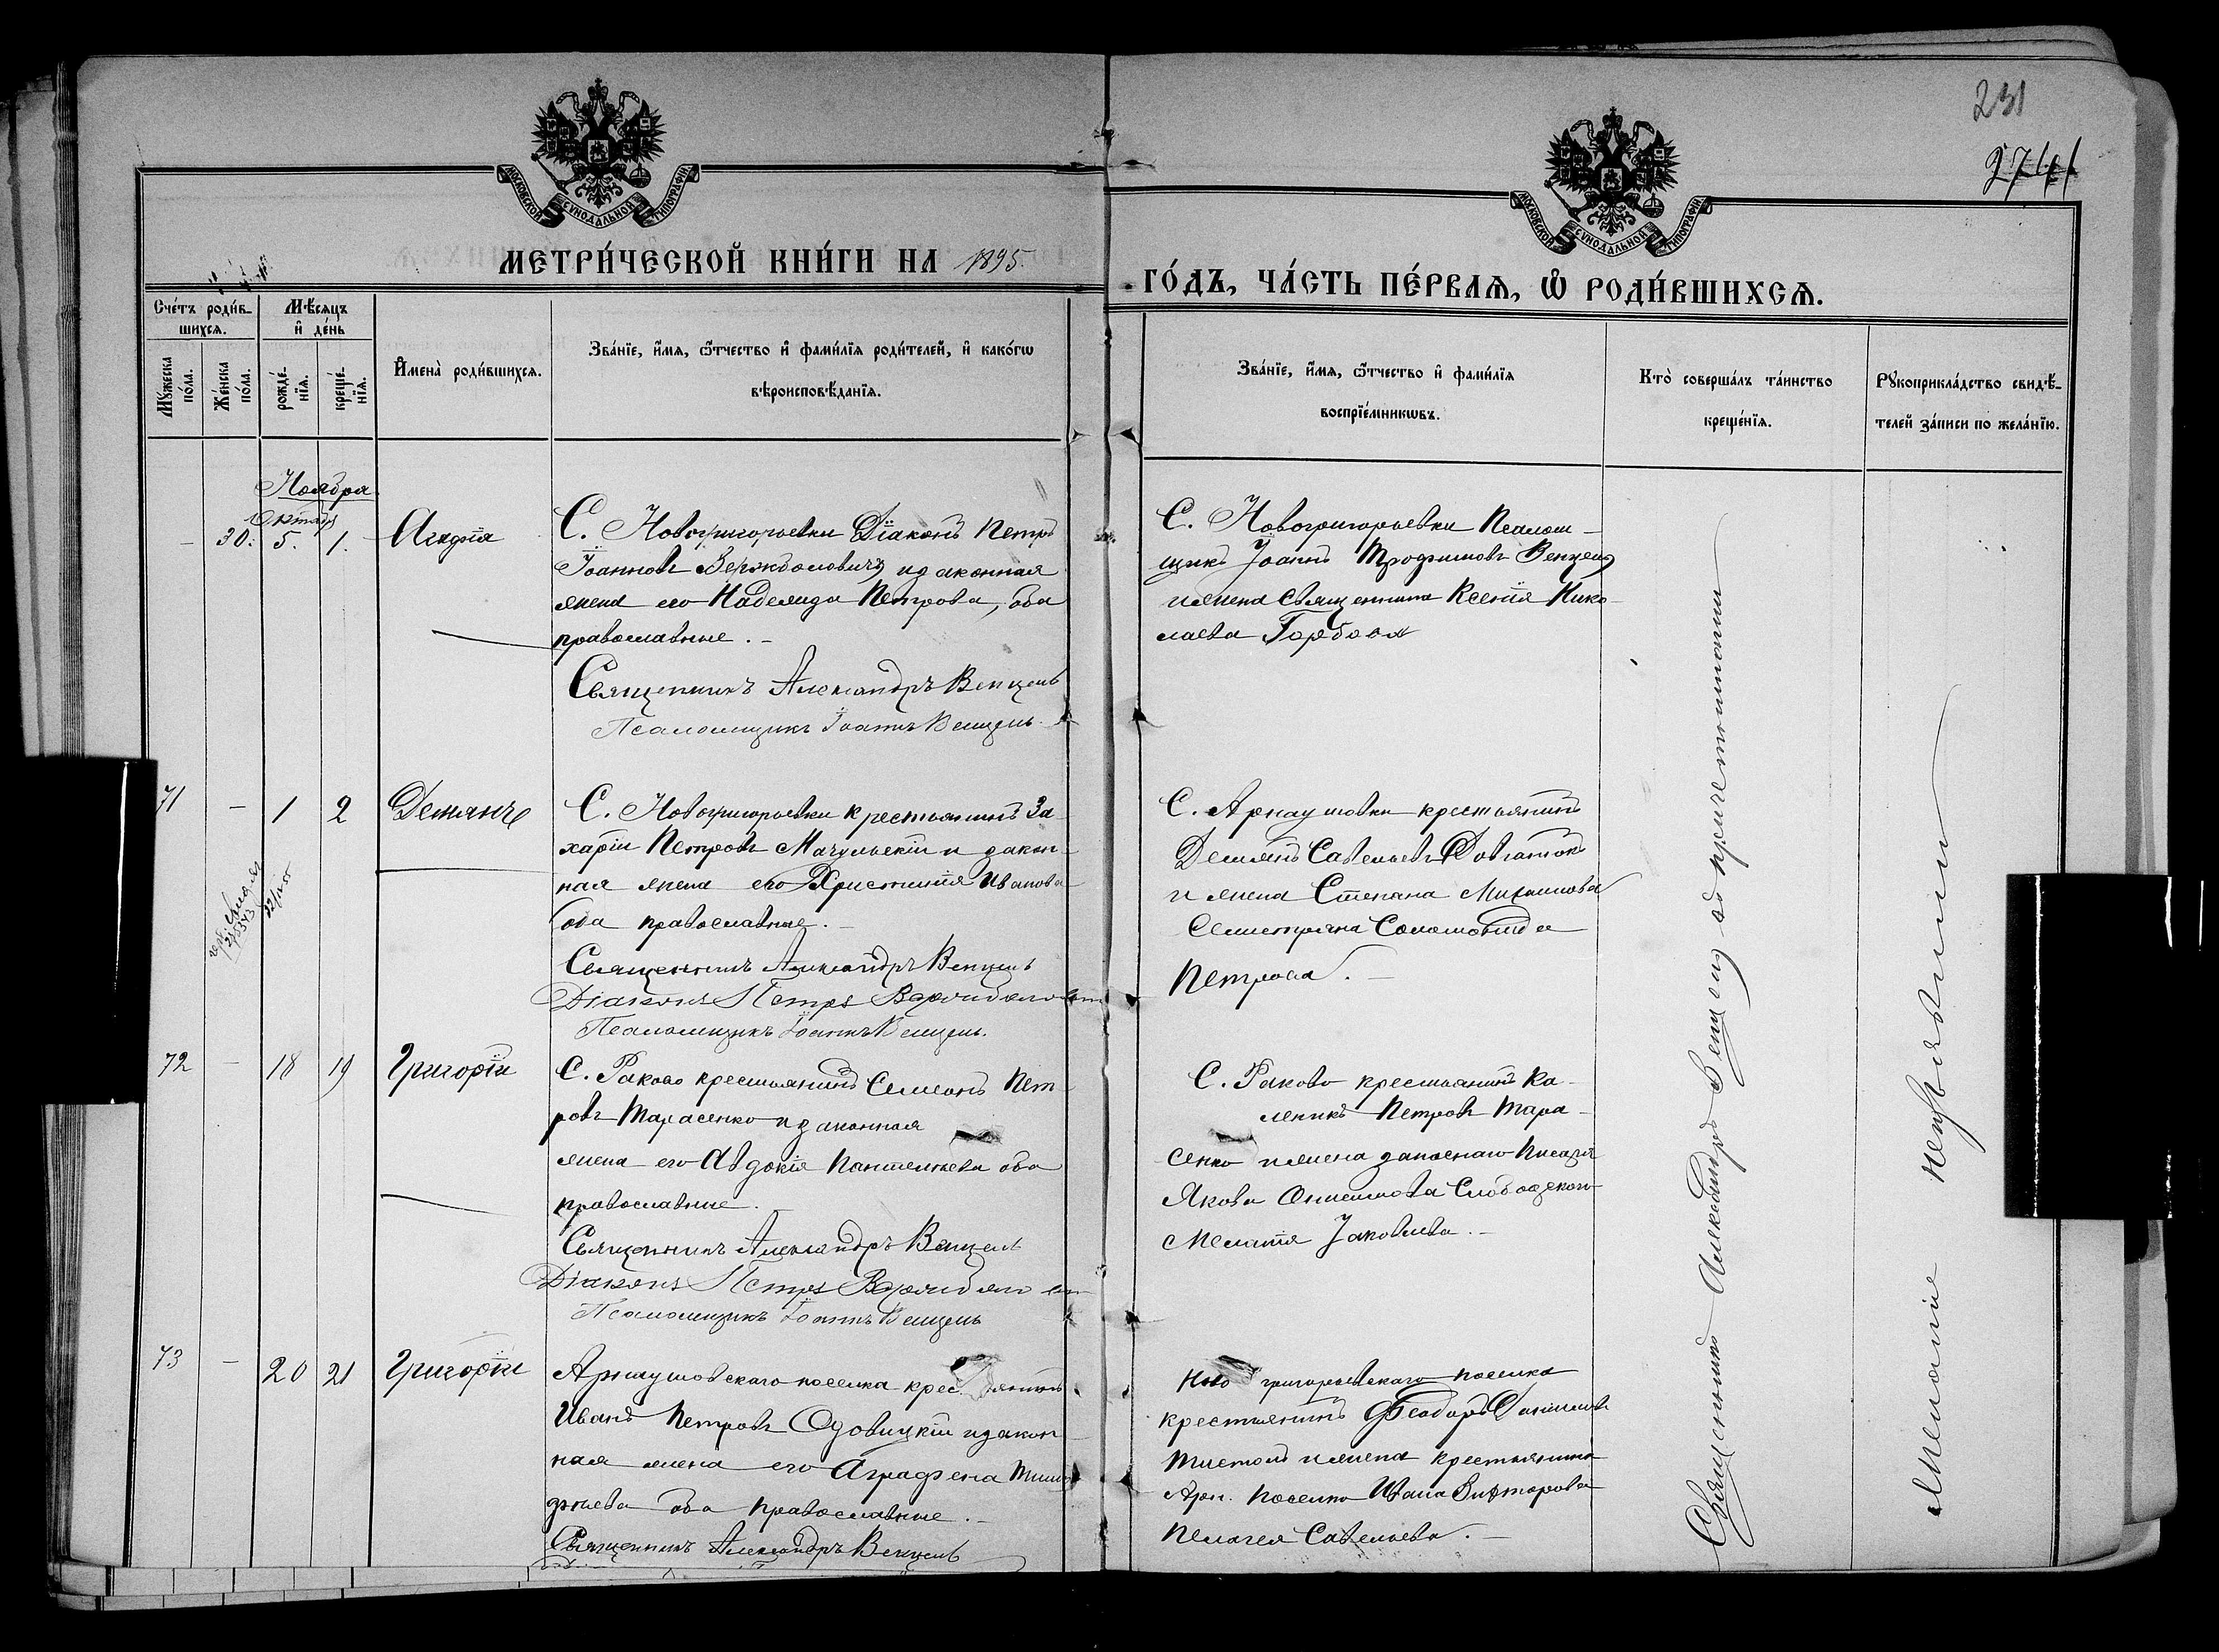 231
2741
МОСКОВСКОЙ СѴНОДАЛЬНОЙ ТИПОГРАФІИ
МОСКОВСКОЙ СѴНОДАЛЬНОЙ ТИПОГРАФІИ
МЕТРИ́ЧЕСКОЙ КНИ́ГИ НА 1895.
ГО́ДЪ, ЧА́СТЬ ПЕ́РВАѦ, Ѡ҆ РОДИ́ВШИХСѦ.
Сче́тъ роди́в-
шихсѧ.
Мѣ́сѧцъ
и҆ де́нь
Мꙋ́жеска
по́ла.
Же́нска
по́ла.
рожде́-
нїѧ.
креще́-
нїѧ.
И҆мена̀ роди́вшихсѧ.
Зва́нїе, и҆́мѧ, ѻ҆́тчество и҆ фами́лїѧ роди́телей, и҆ како́гѡ
вѣроисповѣ́данїѧ.
Зва́нїе, и҆́мѧ, ѻ҆́тчество и҆ фами́лїѧ
воспрїе́мникѡвъ.
Кто̀ соверша́лъ та́инство
креще́нїѧ.
Рꙋкоприкла́дство свидѣ́-
телей за́писи по жела́нїю.
Ноября
Октября
— 30. 5. 1. Агафія
С. Новогригорьевки Діаконъ Петръ
Іоанновъ Вержболовичъ и законная
жена его Надежда Петрова, оба
православные. —
Священникъ Александръ Венцель
Псаломщикъ Іоаннъ Венцель
С. Новогригорьевки Псалом-
щикъ Іоаннъ Трофимовъ Венцель
и жена Священника Ксенія Нико-
лаева
71 — 1 2 Демянъ
С. Новогригорьевки крестьянинъ За-
харій Петровъ Мачульскій и закон-
ная жена его Христинія Иванова
оба православные. —
Священникъ Александръ Венцель
Діаконъ Петръ Вержболовичъ
Псаломщикъ Іоаннъ Венцель.
С. Арнаутовки крестьянинъ
Демянъ Савельевъ
и жена Степана
Соломонида
Петрова. —
72 — 18 19 Григорій
С. Раково крестьянинъ Семеонъ Пет-
ровъ Тарасенко и законная
жена его Авдокія Пантелеева оба
православные.
Священникъ Александръ Венцель
Діаконъ Петръ Вержболович
Псаломщикъ Іоаннъ Венцель
С. Раково крестьянинъ Ка-
леникъ Петровъ Тара-
сенко и жена запаснаго писаря
Якова Онисимова Слободскаго
Мелатія Јаковлева. —
73 — 20 21 Григорій
Арнаутовскаго поселка крес тянинъ
Иванъ Петровъ и закон
ная жена его Аграфена Тимо
фѣева оба православные. —
Священникъ Александръ Венцель
Ново григорьевскаго поселка
крестьянинъ Феодоръ Даніиловъ
и жена крестьянина
Арн. поселка Ивана Викторова
Пелагея Савельева. —
Священникъ Александръ Венцель со причетниками
Желаніе неизъявили